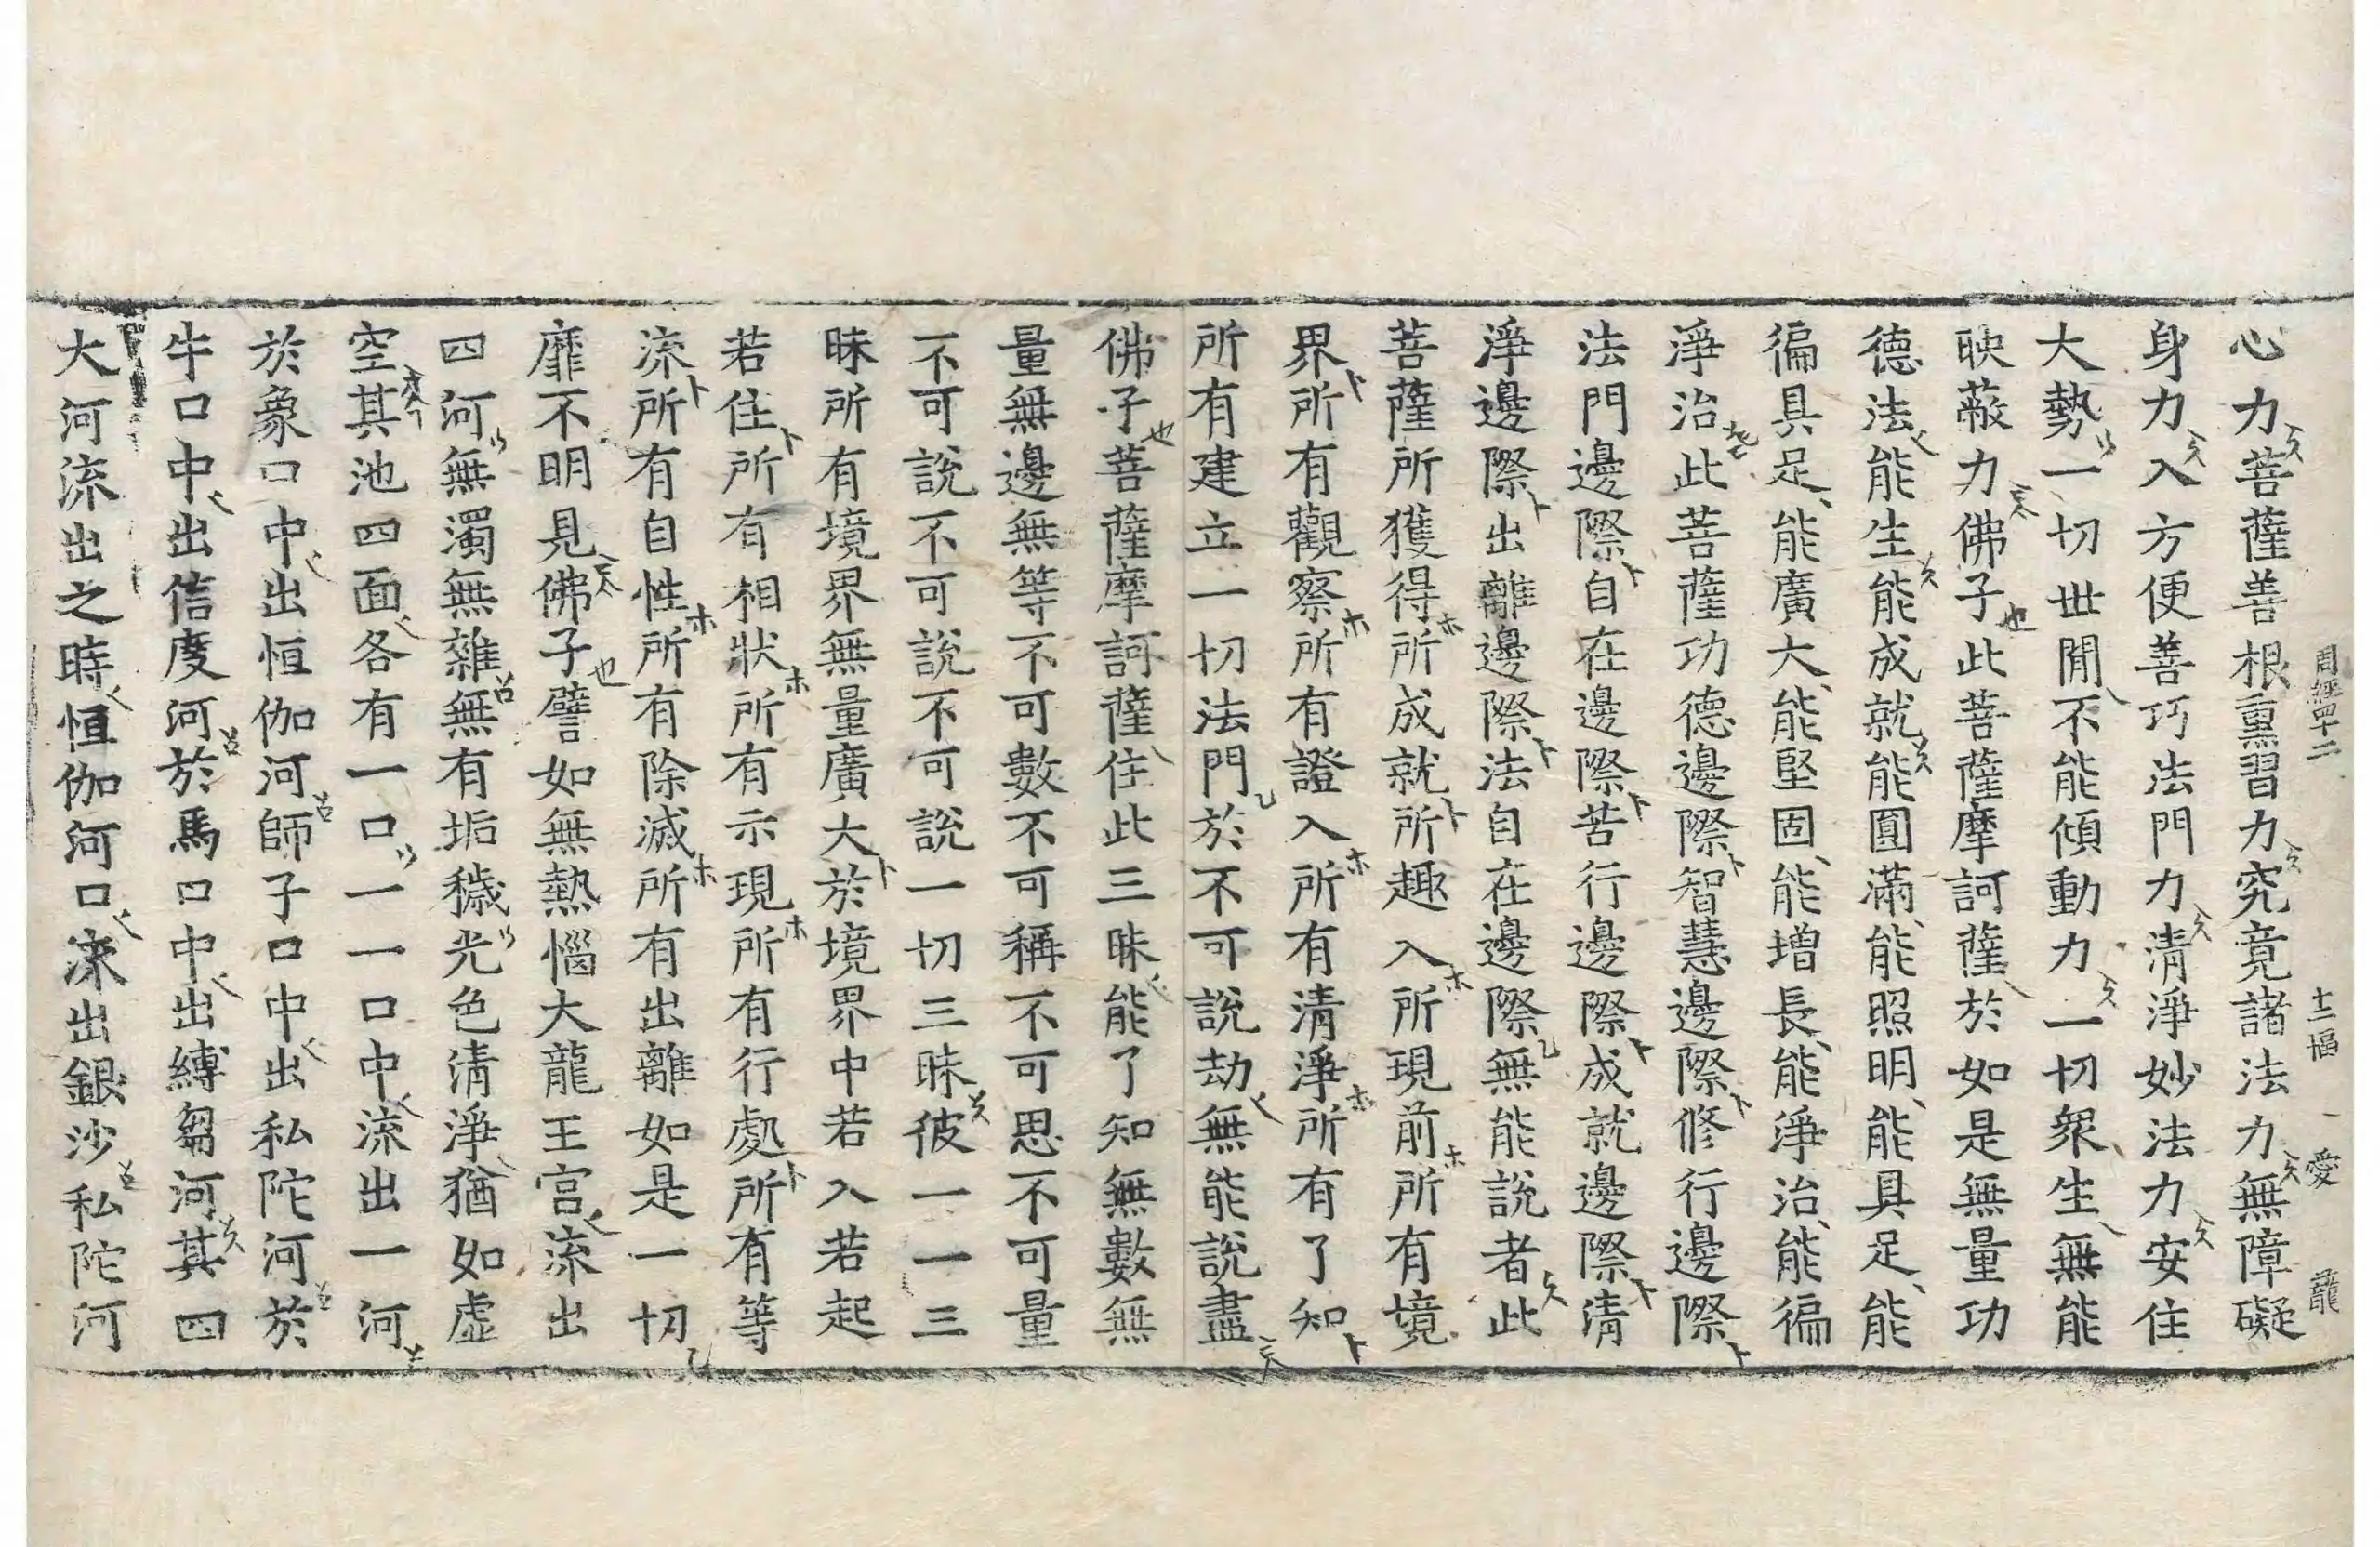 周經四十二 十二幅 愛 龍
心力菩薩善根熏習力究竟諸法力無障礙
身力入方便善巧法門力淸淨妙法力安住
大勢一切世閒不能傾動力一切衆生無能
映蔽力佛子此菩薩摩訶薩於如是無量功
德法能生能成就能圓滿能照明能具足能
徧具足能廣大能堅固能增長能淨治能徧
淨治此菩薩功德邊際智慧邊際修行邊際
法門邊際自在邊際苦行邊際成就邊際淸
淨邊際出離邊際法自在邊際無能說者此
菩薩所獲得所成就所趣入所現前所有境
界所有觀察所有證入所有淸淨所有了知
所有建立一切法門於不可說劫無能說盡
佛子菩薩摩訶薩住此三昧能了知無數無
量無邊無等不可數不可稱不可思不可量
不可說不可說不可說一切三昧彼一一三
昧所有境界無量廣大於境界中若入若起
若住所有相狀所有示現所有行處所有等
流所有自性所有除滅所有出離如是一切
靡不明見佛子譬如無熱惱大龍王宮流出
四河無濁無雜無有垢穢光色淸淨猶如虛
空其池四面各有一口一一口中流出一河
於象口中出恒伽河師子口中出私陀河於
牛口中出信度河於馬口中出縛芻河其四
大河流出之時恒伽河口流出銀沙私陀河